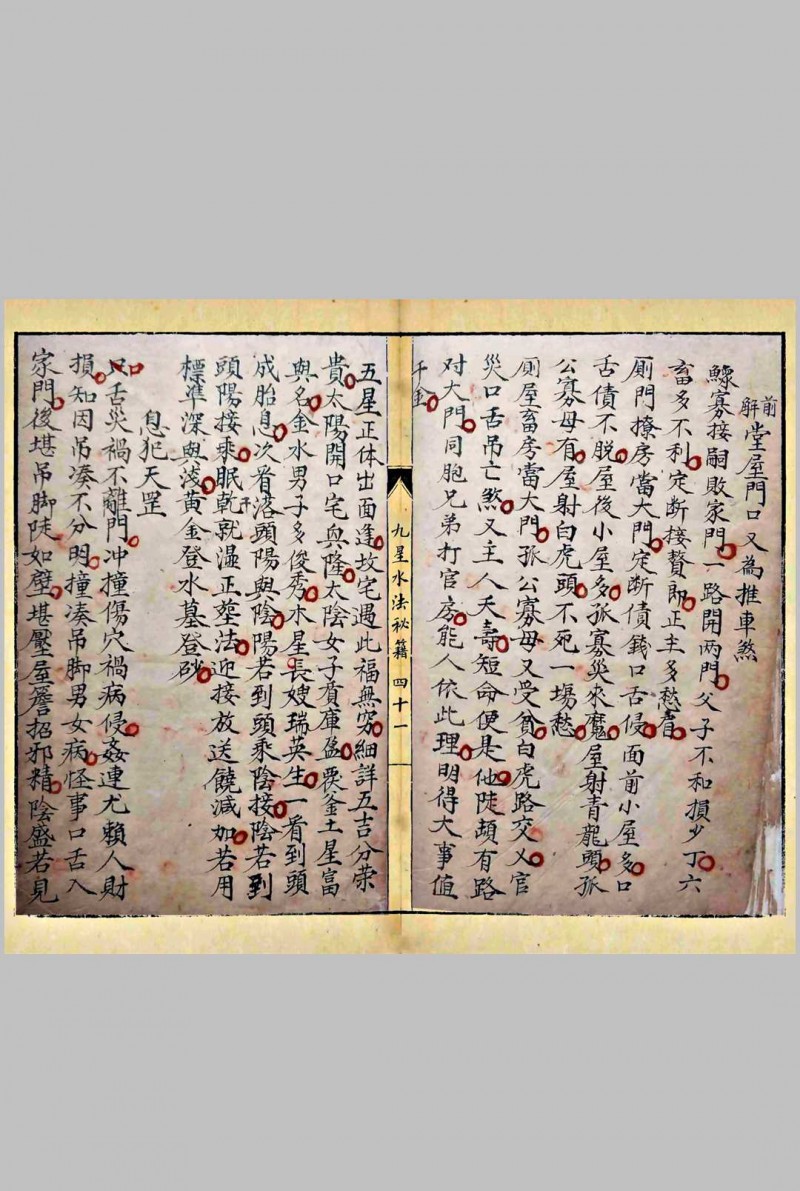 前
解
堂屋門口又為推車煞
鰥寡接嗣敗家門一路開两門父子不和損少丁六
畜多不利定断接贅郎正主多愁
厠門撩房當大門定断債錢口舌侵面前小屋多口
舌債不脱屋後小屋多孤寡災來魔屋射青龍頭孤
公寡母有屋射白虎頭不死一塲愁
厠屋畜房當大門孤公寡母又受貧白虎路交乂官
災口舌吊亡煞又主人夭壽短命便是他陡頭有路
对大門同胞兄弟打官房能人依此理明得大事值
千金
九星水法祕籍 四十一
五星正体出面逢坟宅遇此福無穷細詳五吉分荣
貴太陽開口宅與隆太陰女子有庫盈丧釜土星富
與名金水男子多俊秀木星長嫂瑞英生一看到頭
成胎息次看落頭陽與陰陽若到頭乘陰接陰若到
頭陽接乘眠乾就湿正塟法迎接放送饒減加若用
標準深與浅黄金登水墓登砂
息犯天罡
口舌災禍不離門冲撞傷穴禍病侵姦連尤賴人財
損知因吊凑不分明撞凑吊脚男女病怪事口舌入
家門後堪吊脚陡如壁堪壓屋簷招邪精陰盛若見